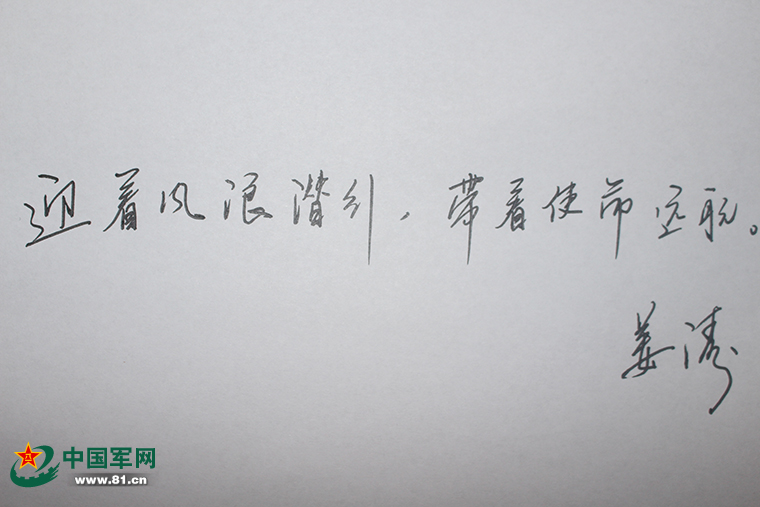 迎着风浪潜行，带着使命远航。
姜涛
中国军网
www.81.cn